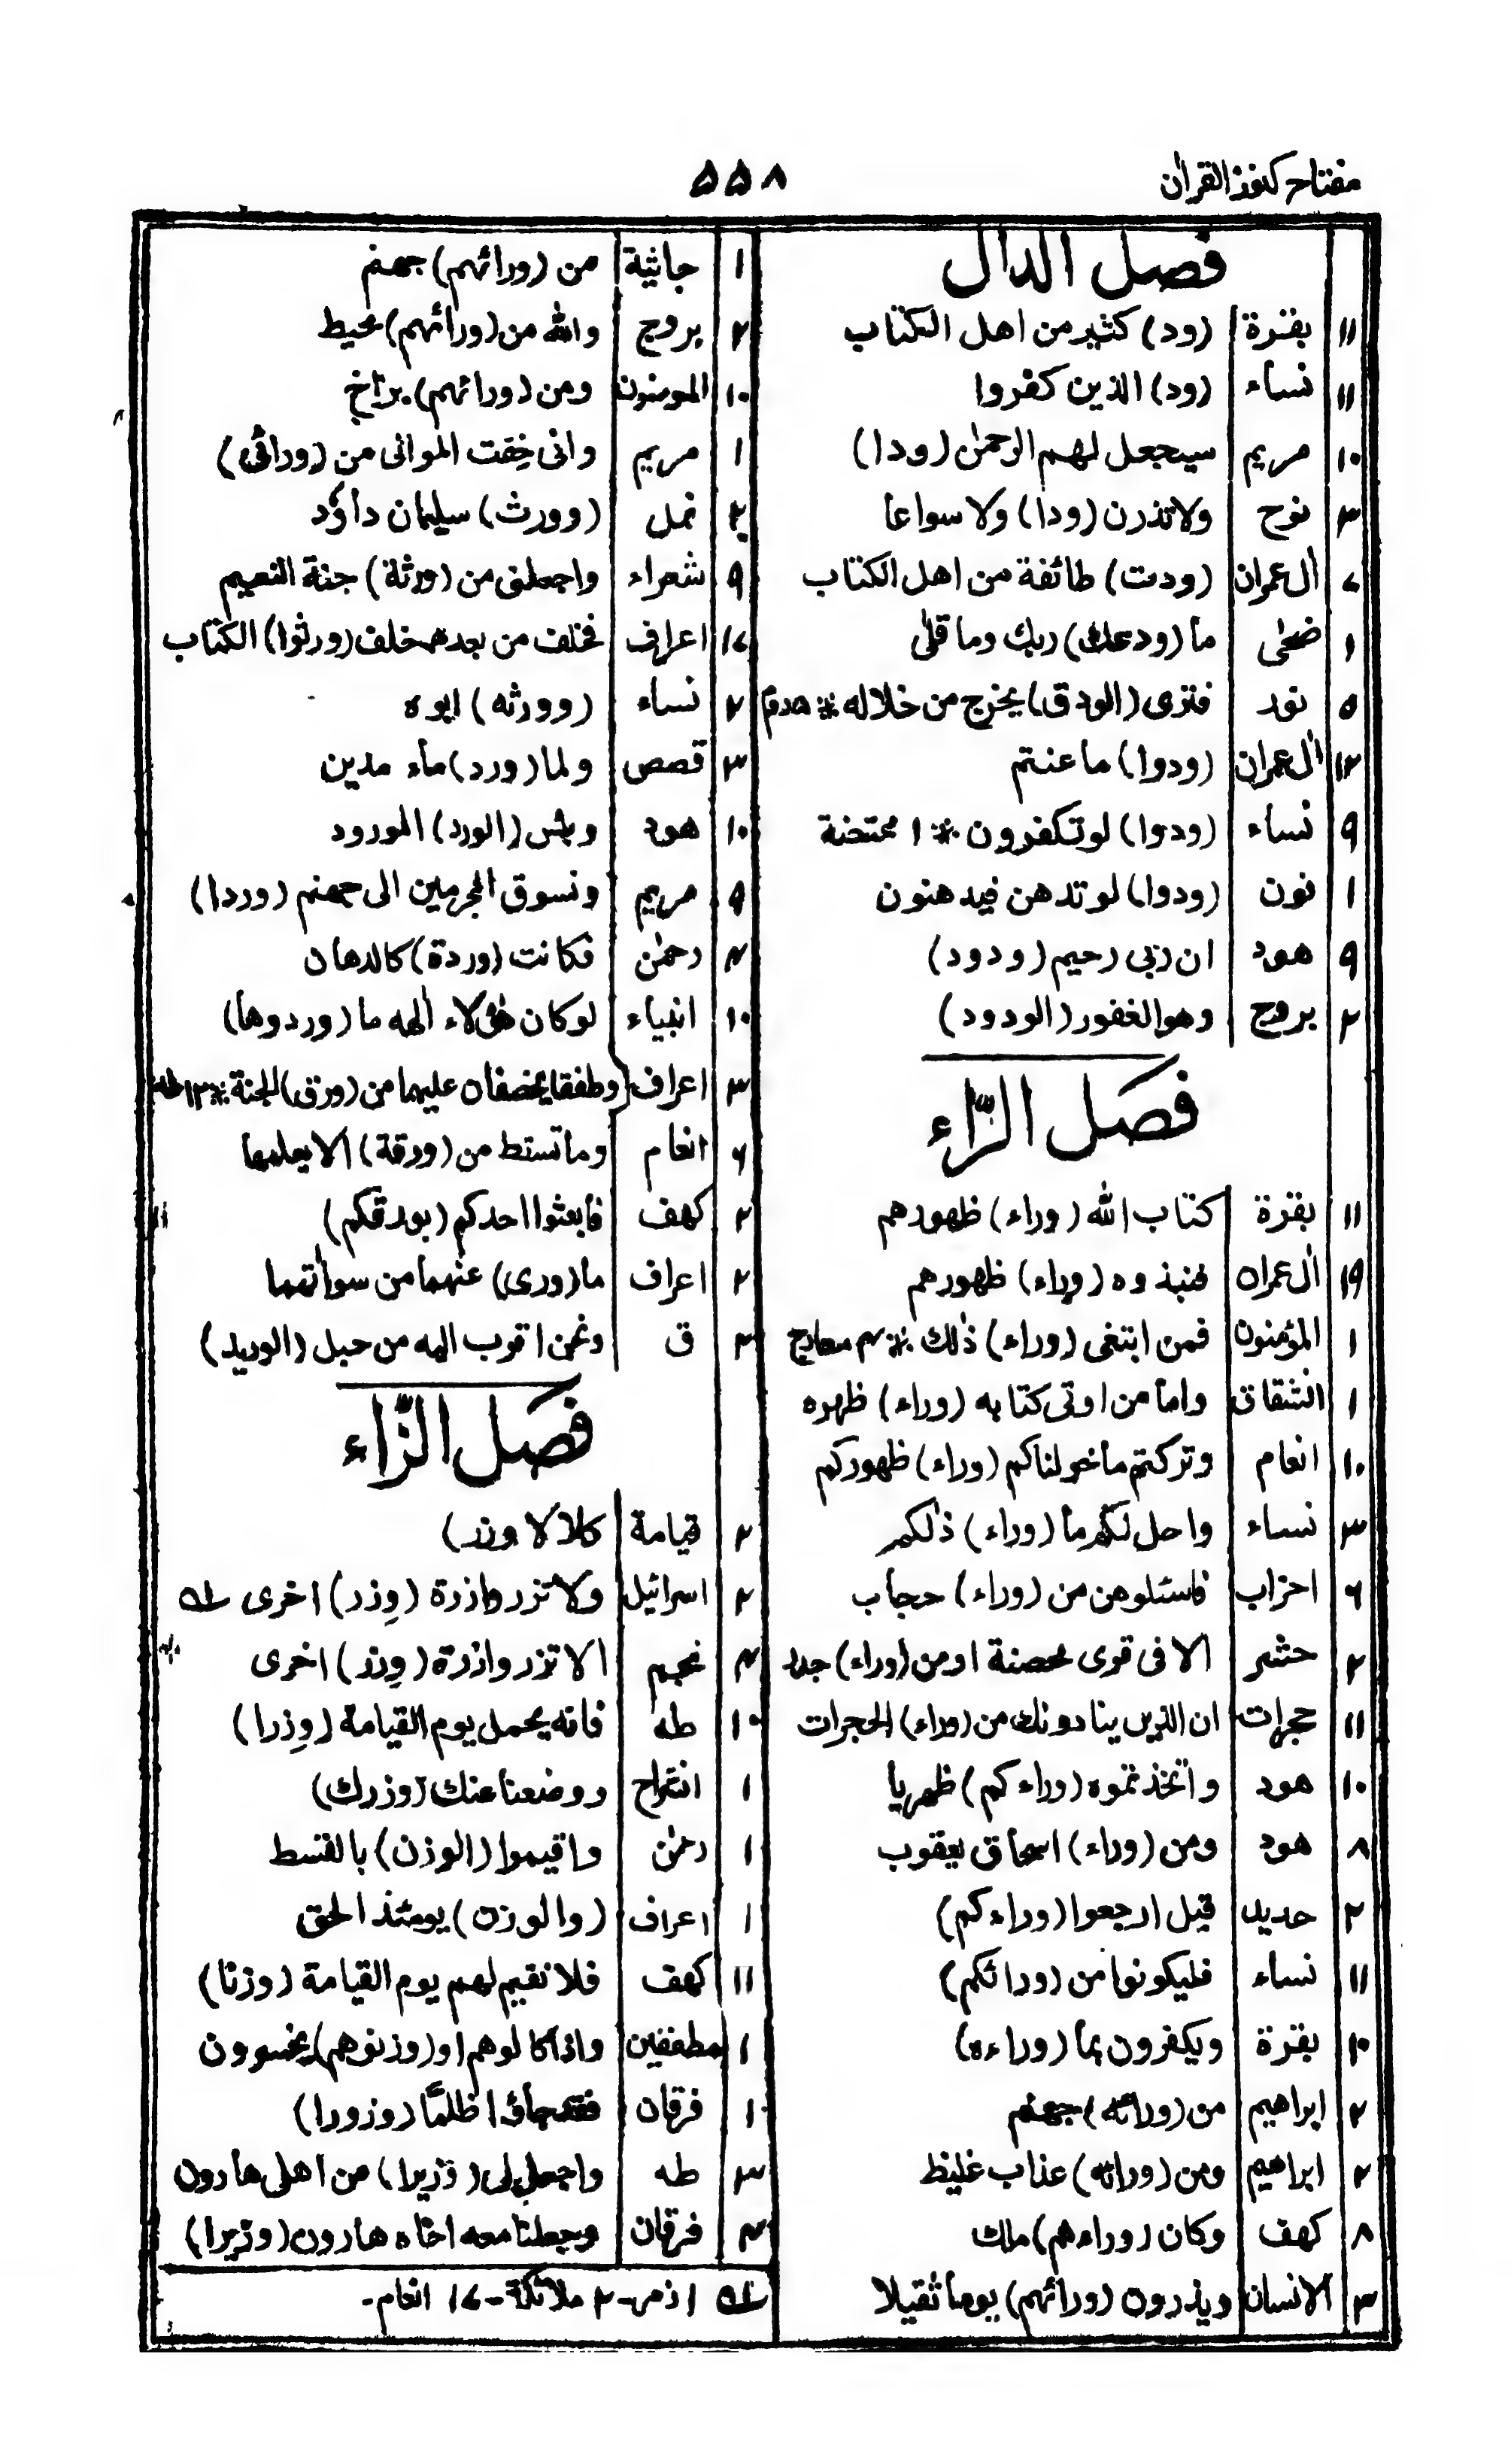 مفتاح کنوز القرآن
۵۵۸
فصل الدال
۱۱ بقرة (ود) کثیر من اهل الکتاب
۱۱ نساء (ود) الذین کفروا
۱۰ مریم سیجعل لهم الرحمٰن (ودا)
۳ نوح ولا تذرن (ودا) ولا سواعا
۷ اٰل عمران (ودت) طائفة من اهل الکتاب
۱ ضحٰی ما (ودعك) ربك وما قلٰی
۵ نور فتری (الودق) یخرج من خلاله
۱۲ اٰل عمران (ودوا) ما عنتم
۹ نساء (ودوا) لو تکفرون ※ ۱ ممتحنة
۱ نون (ودوا) لو تدهن فیدهنون
۹ هود ان ربی رحیم (ودود)
۲ بروج وهو الغفور (الودود)
فصل الرّاء
۱۱ بقرة کتاب الله (وراء) ظهورهم
۱۹ اٰل عمران فنبذوه (وراء) ظهورهم
۱ المؤمنون فمن ابتغی (وراء) ذٰلك ※ معارج
۱ انشقاق واما من اوتی کتابه (وراء) ظهره
۱۰ انعام وترکتم ما خولناکم (وراء) ظهورکم
۳ نساء واحل لکم ما (وراء) ذٰلکم
۶ احزاب فاسئلوهن من (وراء) حجاب
۲ حشر الا فی قری محصنة او من (وراء) جدر
۱۱ حجرات ان الذین ینادونك من (وراء) الحجرات
۱۰ هود واتخذتموه (وراءکم) ظهریا
۸ هود ومن (وراء) اسحاق یعقوب
۲ حدید قیل ارجعوا (وراءکم)
۱۱ نساء فلیکونوا من (ورائکم)
۱۰ بقرة ویکفرون بما (وراءه)
۲ ابراهیم من (ورائه) جهنم
۲ ابراهیم ومن (ورائه) عذاب غلیظ
۸ کهف وکان (وراءهم) ملك
۳ الانسان ویذرون (ورائهم) یوما ثقیلا
۱ جاثیة من (ورائهم) جهنم
۲ بروج والله من (ورائهم) محیط
۱۰ المومنون ومن (ورائهم) برزخ
۱ مریم وانی خِفت الموالی من (ورائی)
۲ نمل (وورث) سلیمان داؤد
۹ شعراء واجعلنی من (ورثة) جنة النعیم
۱۷ اعراف فخلف من بعدهم خلف (ورثوا) الکتاب
۲ نساء (وورثه) ابوه
۳ قصص ولما (ورد) ماء مدین
۱۰ هود وبئس (الورد) المورود
۹ مریم ونسوق المجرمین الی جهنم (وردا)
۲ رحمٰن فکانت (وردة) کالدهان
۱۰ انبیاء لو کان هٰؤلاء اٰلهه ما (وردوها)
۳ اعراف وطفقا یخصفان علیهما من (ورق) الجنة
۶ انعام وما تسقط من (ورقة) الا یعلمها
۲ کهف فابعثوا احدکم (بورقکم)
۲ اعراف ما (وری) عنهما من سواٰتهما
۲ ق ونحن اقرب الیه من حبل (الورید)
فصل الزّاء
۲ قیامة کلا لا وزر)
۲ اسرائیل ولا تزر وازرة (وِزر) اخری
نجم الا تزر وازرة (وِزر) اخری
۱۰ طه فانه یحمل یوم القیامة (وِزرا)
۱ انشراح ووضعنا عنك (وزرك)
۱ رحمٰن واقیموا (الوزن) بالقسط
۱ اعراف (والوزن) یومئذ الحق
۱۱ کهف فلا نقیم لهم یوم القیامة (وزنا)
۱ مطففین واذا کالوهم او (وزنوهم) یخسرون
۱ فرقان فقد جاؤا ظلمًا (وزورا)
۳ طه واجعل لی (وزیرا) من اهلی هارون
۴ فرقان وجعلنا معه اخاه هارون (وزیرا)
۱ زمر - ۲ ملائکة - ۱۷ انعام -